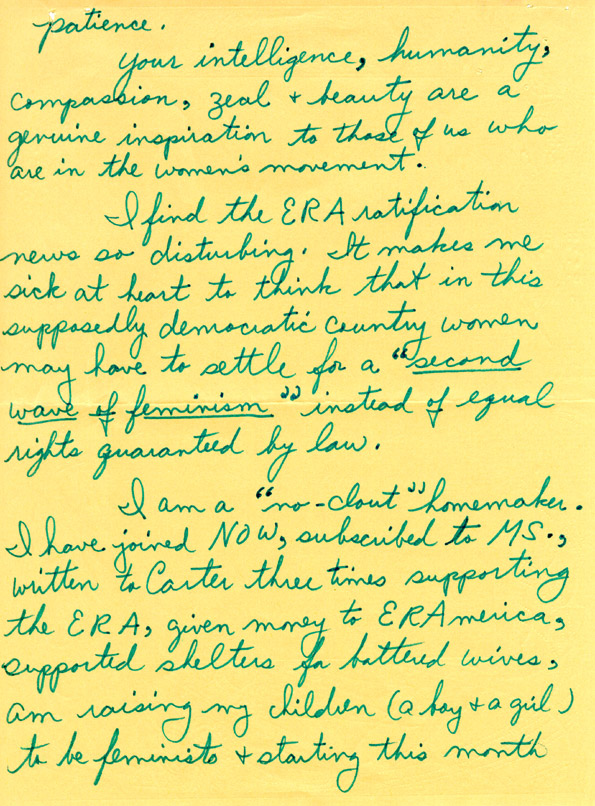 patience.
Your intelligence, humanity,
compassion, zeal + beauty are a
genuine inspiration to those of us who
are in the women's movement.
I find the ERA ratification
news so disturbing. It makes me
sick at heart to think that in this
supposedly democratic country women
may have to settle for a "second
wave of feminism" instead of equal
rights guaranteed by law.
I am a "no-clout" homemaker.
I have joined NOW, subscribed to MS.,
written to Carter three times supporting
the ERA, given money to ERAmerica,
supported shelters for battered wives,
am raising my children (a boy + a girl)
to be feminists + starting this month